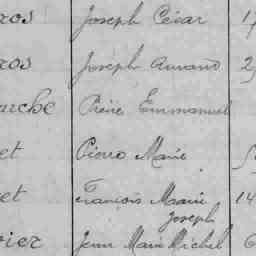 ros Joseph César 1
ros Joseph Armand 2
arche Pierre Emmanuel
et Pierre Marie
et François Marie 14
Joseph
vier Jean Marie Michel 6